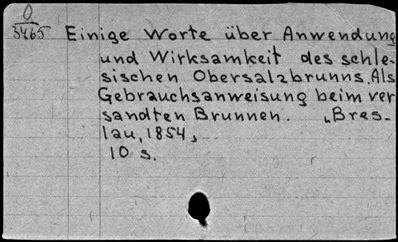 O
3465 Einige Worte über Anwendung
und Wirksamkeit des schle-
sischen Obersalzbrunns. Als
Gebrauchsanweisung beim ver
sandten Brunnen. „Bres-
lau, 1854,
10 s.